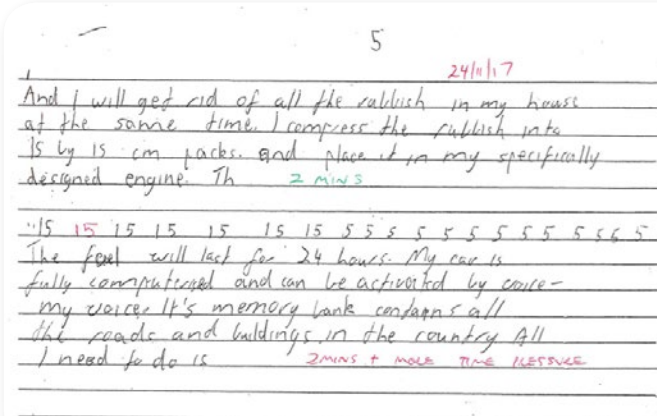 5
24/11/17
1
And I will get rid of all the rubbish in my house
at the same time. I compress the rubbish into
15 by 15 cm packs. and place it in my specifically
designed engine. Th 2 MINS
"15 15 15 15 15 15 15 5 5 5 5 5 5 5 5 5 5 5 6 5
The fuel will last for 24 hours. My car is
fully computerised and can be activated by voice-
my voice. It's memory bank contains all
the roads and buildings in the country All
I need to do is 2 MINS + MORE TIME PRESSURE